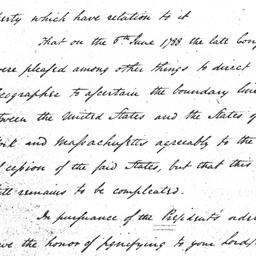 erty which have relation to it
That on the 6th June 1788 the late Con
were pleased among other things to direct
Geographer to ascertain the boundary line
tween the United States and the States of
ork and Massachusetts agreeably to the
of cession of the said States, but that this
till remains to be compleated.
In pursuance of the President's orde
ave the honor of signifying to your